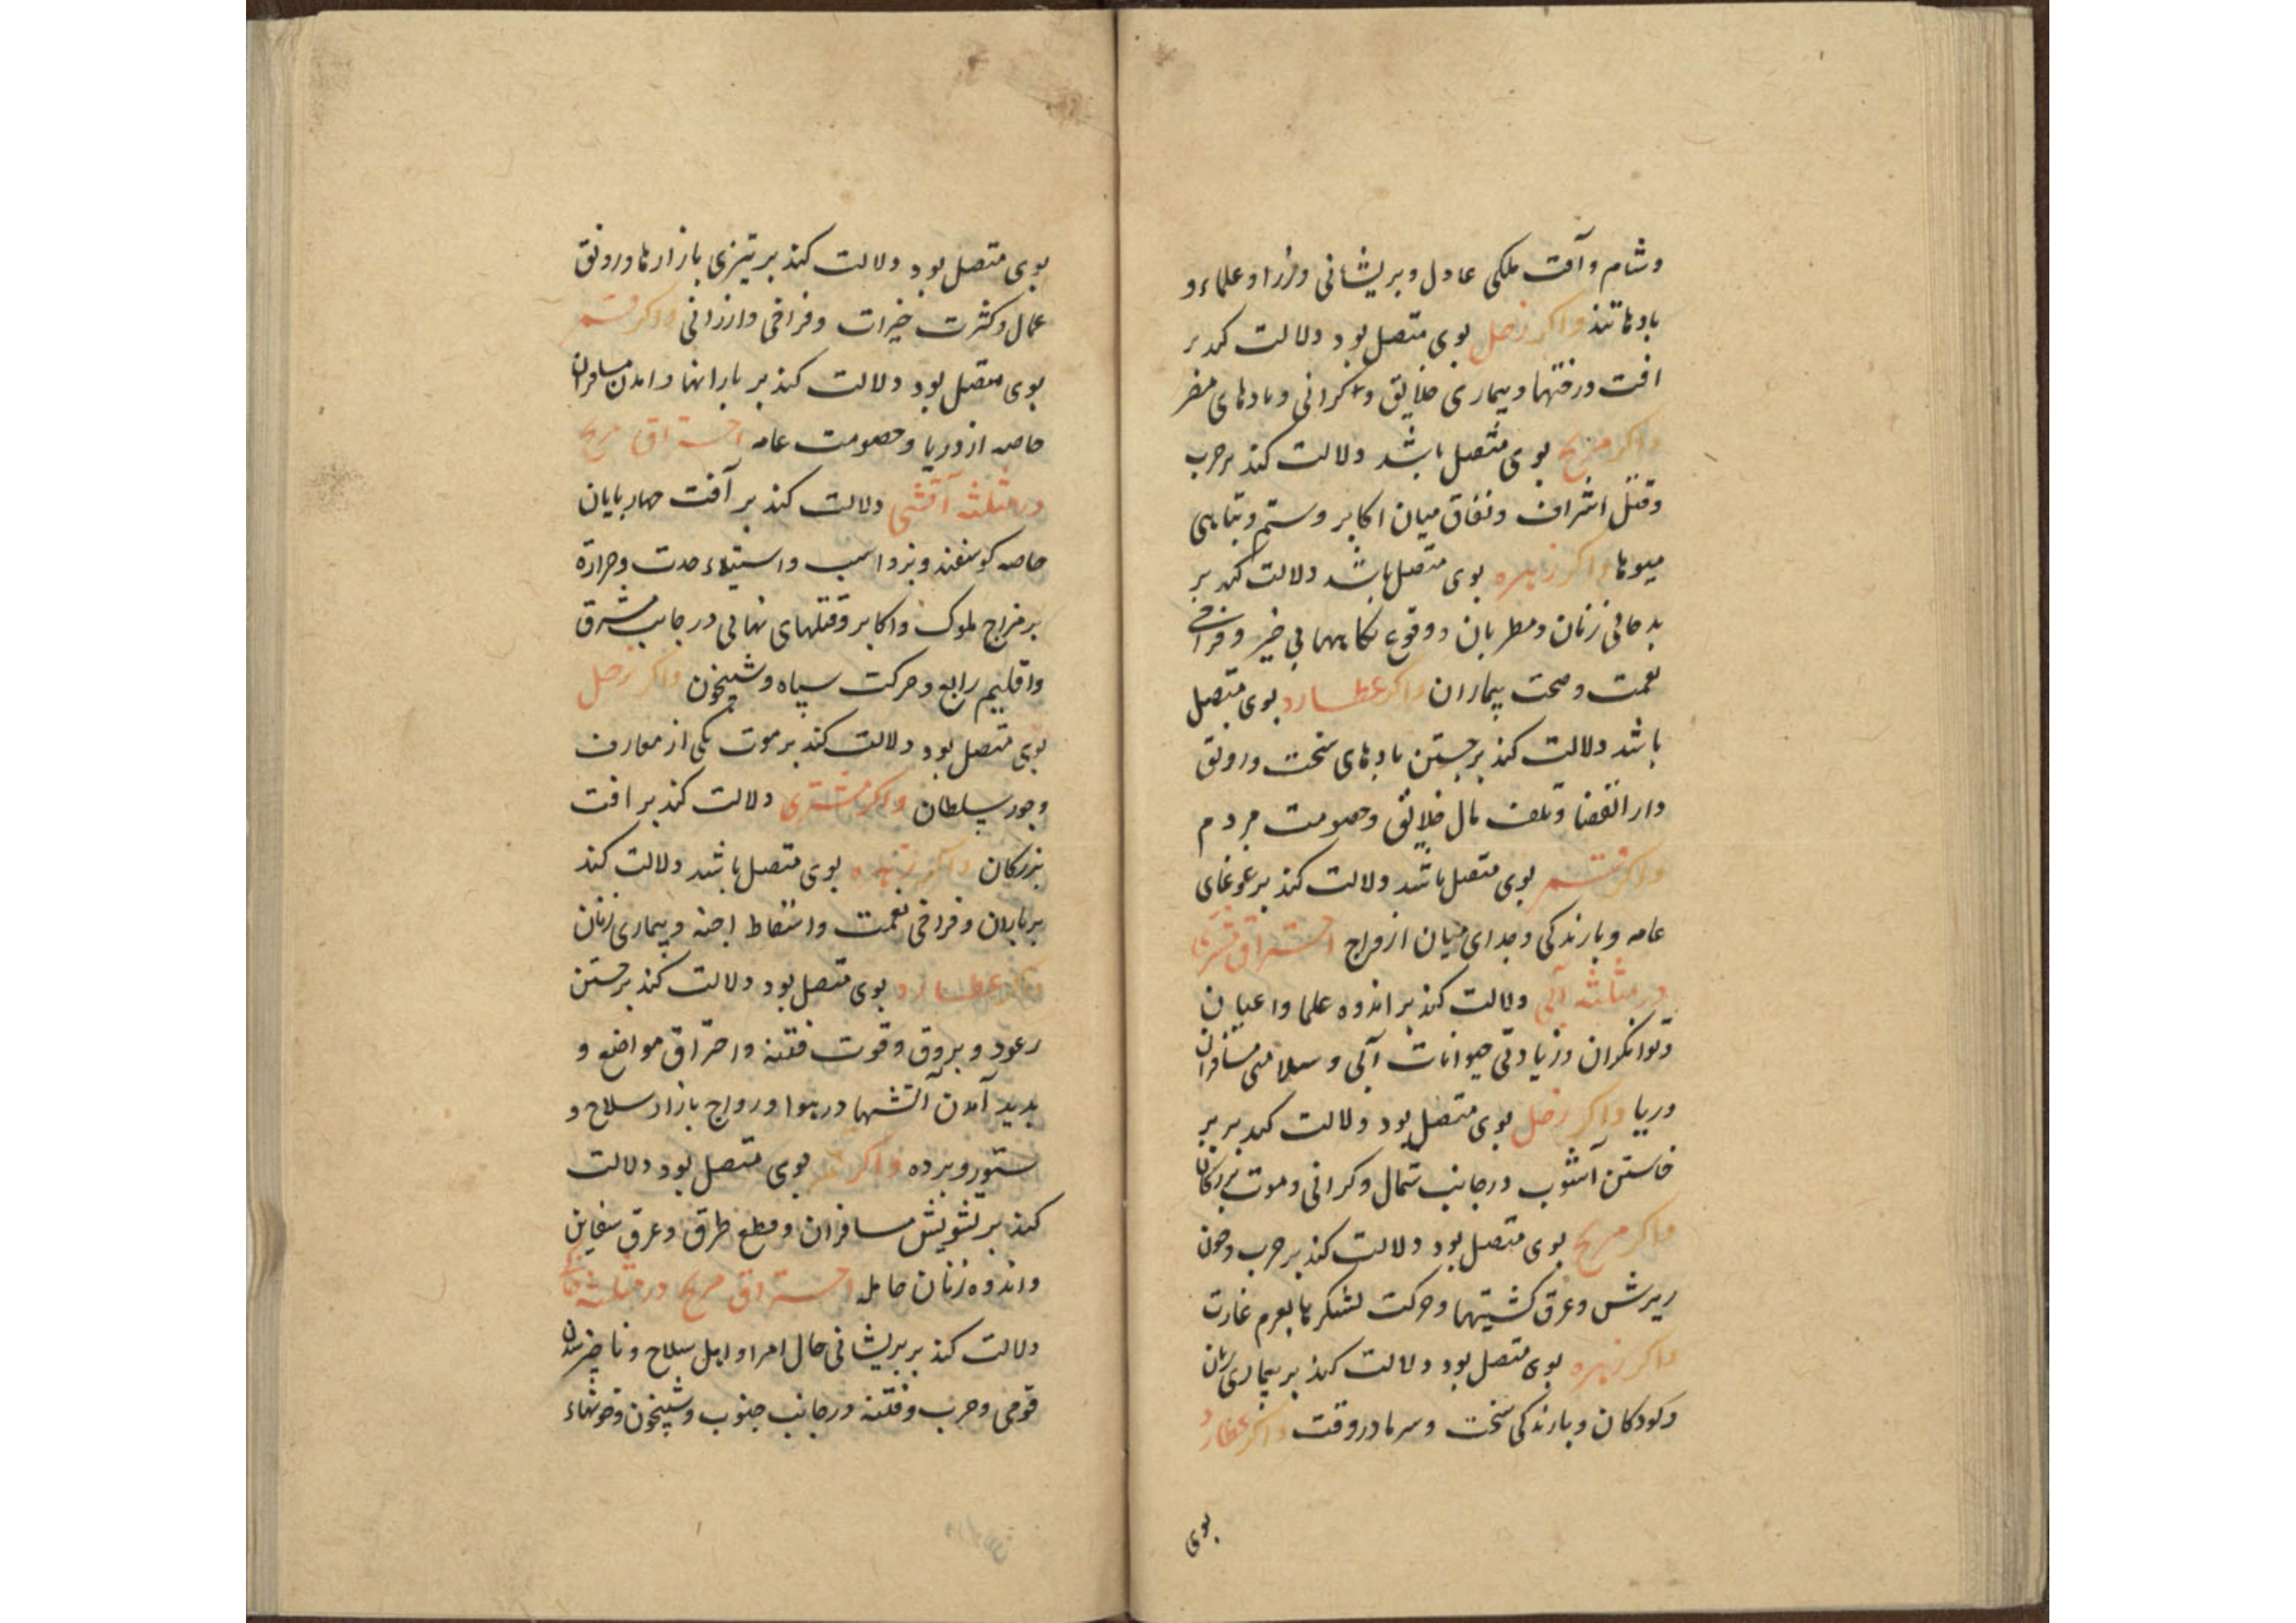 وشام وآفت ملکی عادل وبریشانی وزرا وعلماء و
بادها تند واکر زحل بوی متصل بود دلالت کند بر
افت درختها وبیماری خلایق و کرانی وبادهای مضر
واکر مریخ بوی متصل باشد دلالت کند بر حرب
وقتل اشراف ونفاق میان اکابر وستم وتباهی
میوها واکر زهره بوی متصل باشد دلالت کند بر
بد حالی زنان ومطربان ووقوع نکاحهای بی خیر وفراخی
نعمت وصحت بیماران واکر عطارد بوی متصل
باشد دلالت کند بر جستن بادهای سخت ورونق
دار القضا وتلف مال خلائق وخصومت مردم
واکر قمر بوی متصل باشد دلالت کند بر غوغای
عامه وبارندکی وجدای میان ازواج احتراق مشتری
در مثلثه آبی دلالت کند بر اندوه علما واعیان
وتوانکران وزیادتی حیوانات آبی وسلامتی مسافران
دریا واکر زحل بوی متصل بود دلالت کند بر بر
خاستن آشوب در جانب شمال وکرانی وموت بزرکان
واکر مریخ بوی متصل بود دلالت کند بر حرب وخون
ریزش وغرق کشتیها وحرکت لشکرها بعزم غارت
واکر زهره بوی متصل بود دلالت کند بر بیماری زنان
وکودکان وبارندکی سخت وسرما در وقت واکر عطارد
بوی
بوی متصل بود دلالت کند بر تیزی بازارها ورونق
عمال وکثرت خیرات وفراخی وارزانی واکر قمر
بوی متصل بود دلالت کند بر بارانها وامدن مسافران
خاصه از دریا وخصومت عامه احتراق مریخ
در مثلثه آتشی دلالت کند بر آفت چهاربایان
خاصه کوسفند وبز واسب واستیلاء حدت وحرارة
بر مزاج ملوک واکابر وقتلهای نهانی در جانب مشرق
واقلیم رابع وحرکت سپاه وشبیخون واکر زحل
بوی متصل بود دلالت کند بر موت یکی از معارف
وجور سلطان واکر مشتری دلالت کند بر افت
بزرکان واکر زهره بوی متصل باشد دلالت کند
بر باران وفراخی نعمت واسقاط اجنه وبیماری زنان
واکر عطارد بوی متصل بود دلالت کند بر جستن
رعود وبروق وقوت فتنه واحتراق مواضع و
بدید آمدن آتشها در هوا ورواج بازار سلاح و
ستور وبرده واکر قمر بوی متصل بود دلالت
کند بر تشویش مسافران وقطع طرق وغرق سفاین
واندوه زنان حامله احتراق مریخ در مثلثه خاکی
دلالت کند بر بریشانی حال امرا واهل سلاح ونا چیز شدن
قومی وحرب وفتنه در جانب جنوب وشبیخون وخونهاء